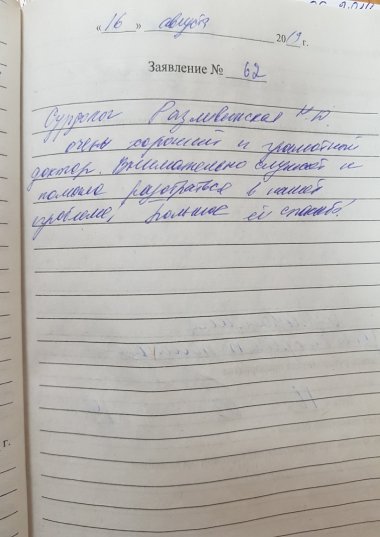 « 16 » августа 2019 г.
Заявление № 62
Сурдолог
очень хороший и грамотной
доктор. Внимательно слушает и
помогла разобраться в нашей
проблеме, Большое ей спасибо!
г.